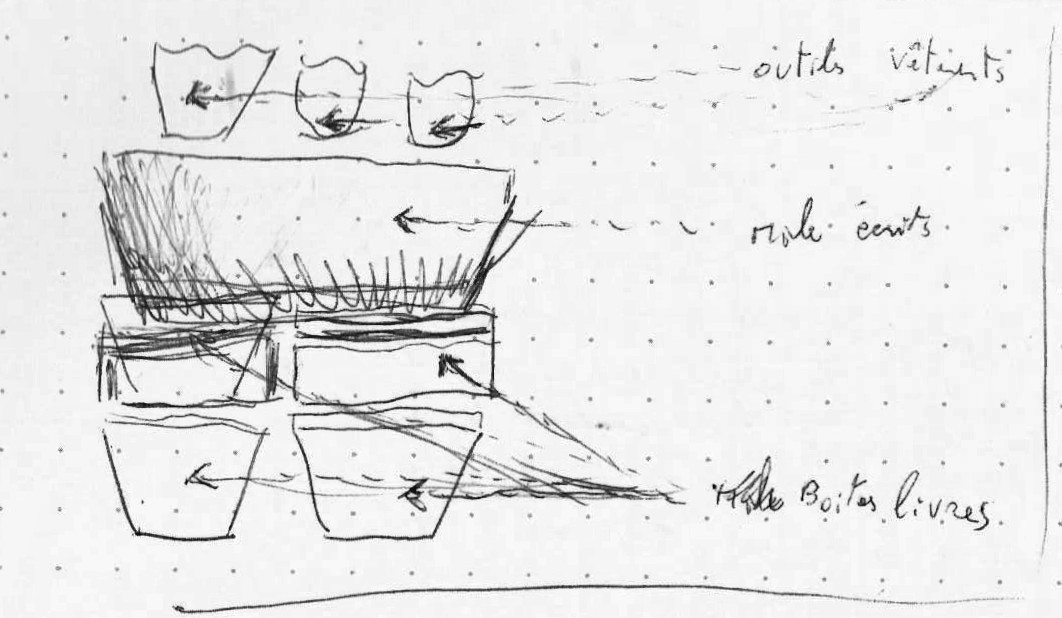 outils vêtements
écrits
Boites livres